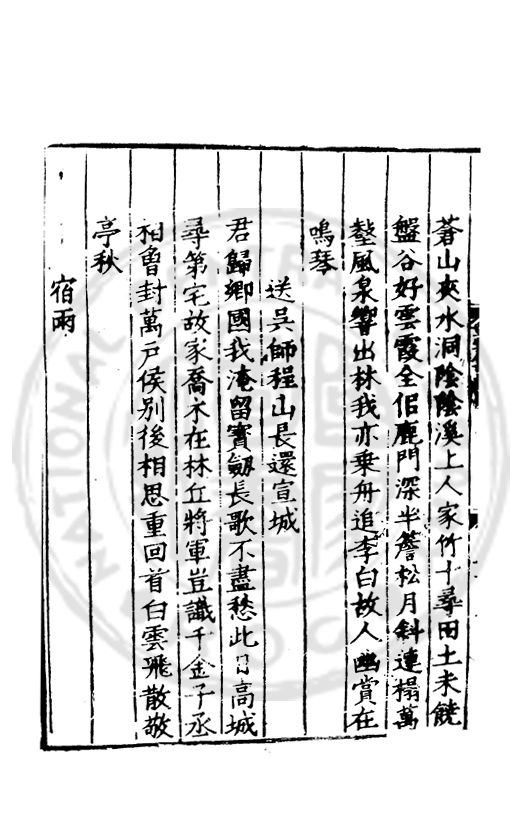 蒼山夾水洞陰陰溪上人家竹十尋田土未饒
盤谷好雲霞全佀鹿門深半簷松月斜連榻萬
壑風泉響出林我亦乗舟追李白故人幽賞在
鳴琴
送吳師程山長還宣城
君歸鄉國我淹留寳劔長歌不盡愁此日高城
尋第宅故家喬木在林丘將軍豈識千金子丞
相魯封萬戸侯别後相思重回首白雲飛散敬
亭秋
宿雨